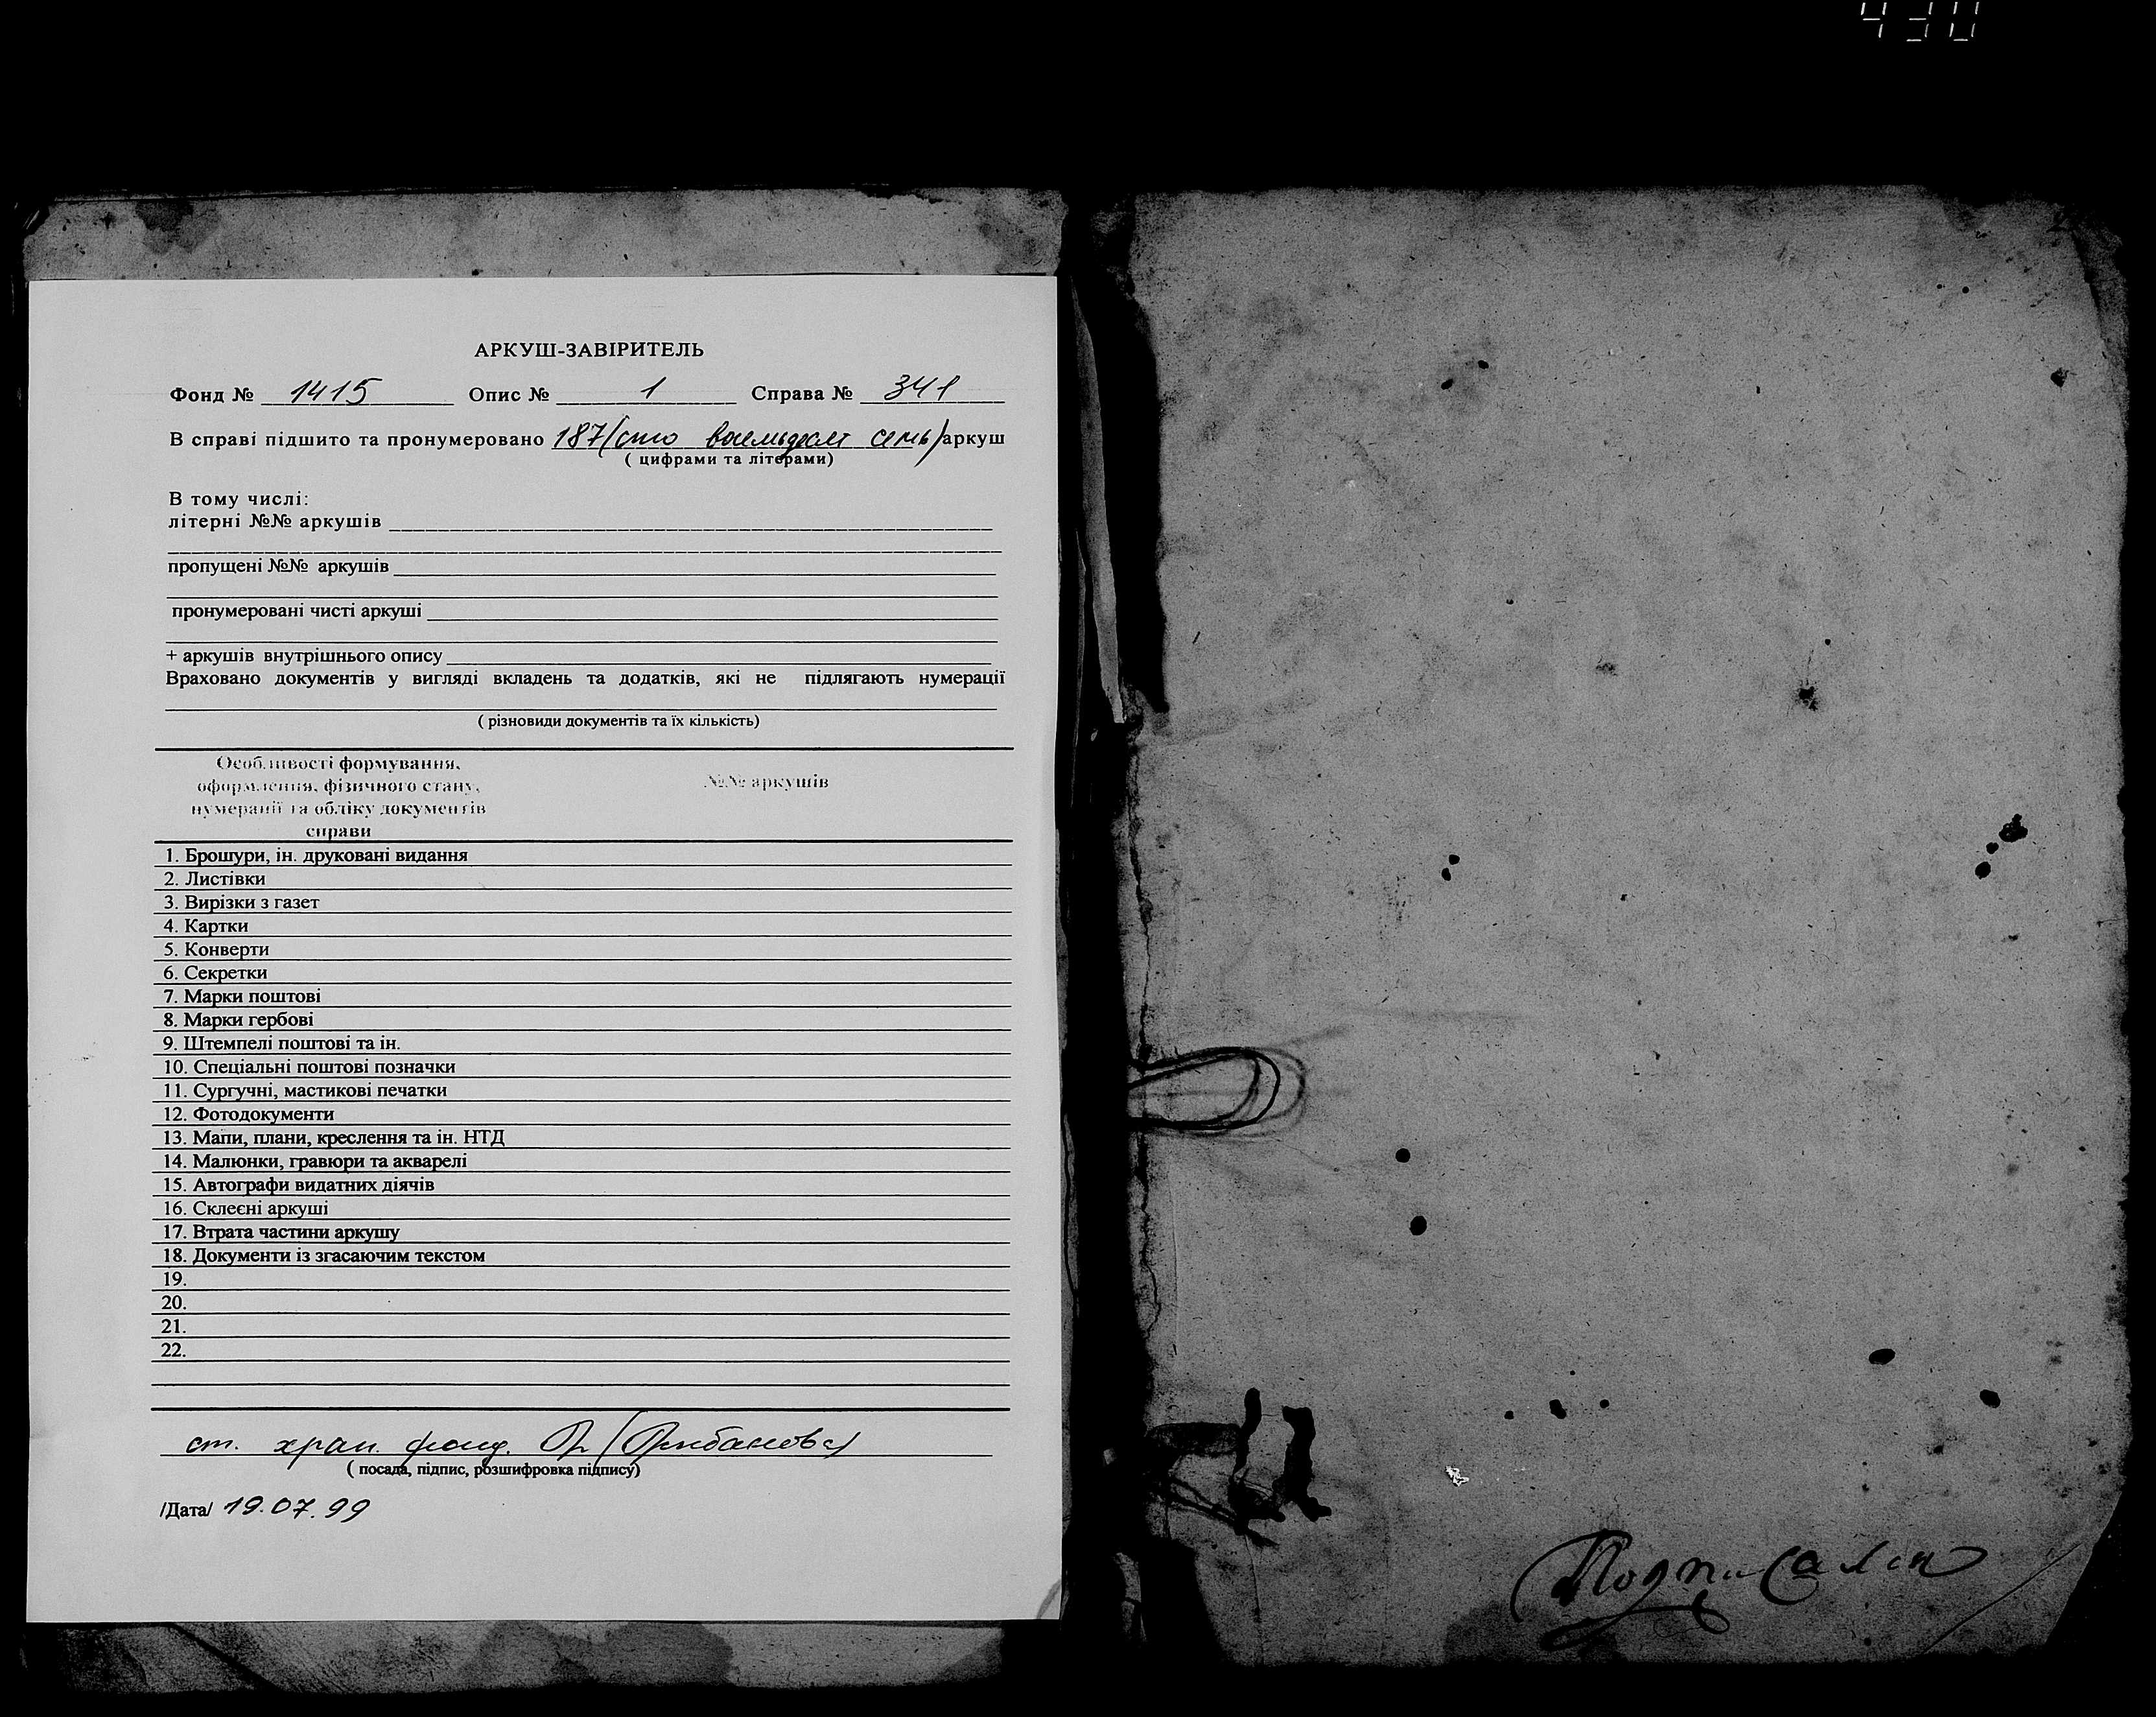 430
АРКУШ-ЗАВІРИТЕЛЬ
Фонд № 1415 Опис № 1 Справа № 341
В справі підшито та пронумеровано 187/сто восемьдесят семь/аркуш
( цифрами та літерами)
В тому числі:
літерні №№ аркушів
пропущені №№ аркушів
пронумеровані чисті аркуші
+ аркушів внутрішнього опису
Враховано документів у вигляді вкладень та додатків, які не підлягають нумерації
( різновиди документів та їх кількість)
Особливості формування,
оформлення, фізичного стану,
нумерації та обліку документів
справи
№№ аркушів
1. Брошури, ін. друковані видання
2. Листівки
3. Вирізки з газет
4. Картки
5. Конверти
6. Секретки
7. Марки поштові
8. Марки гербові
9. Штемпелі поштові та ін.
10. Спеціальні поштові позначки
11. Сургучні, мастикові печатки
12. Фотодокументи
13. Мапи, плани, креслення та ін. НТД
14. Малюнки, гравюри та акварелі
15. Автографи видатних діячів
16. Склеєні аркуші
17. Втрата частини аркушу
18. Документи із згасаючим текстом
19.
20.
21.
22.
ст. хран. фонд.
( посада, підпис, розшифровка підпису)
/Дата/ 19.07.99